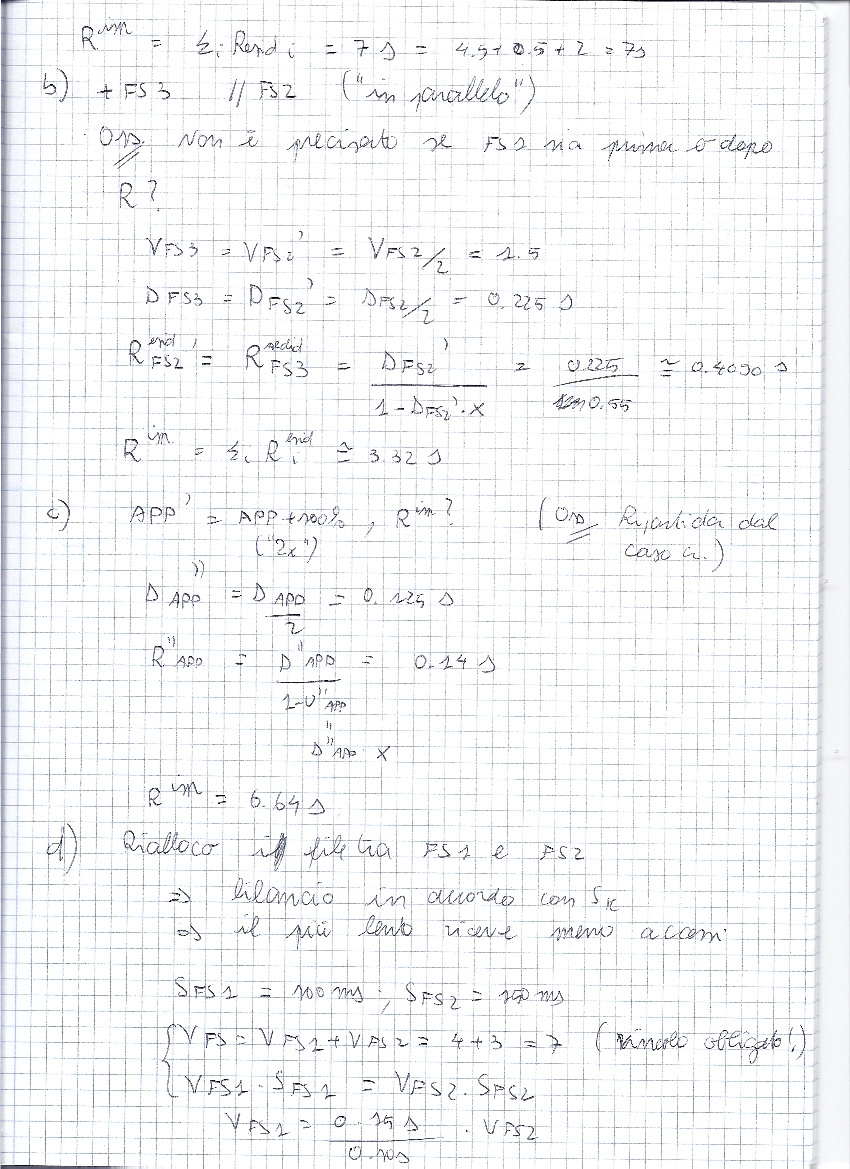 R^im = Σi Rend i = 7 s = 4.5+0.5+2 = 7s
b) + FS3 // FS2 ("in parallelo")
Oss. Non è precisato se FS1 sia prima o dopo
R?
VFS3 = VFS2' = VFS2/2 = 1.5
DFS3 = DFS2' = DFS2/2 = 0.225 s
R^end FS2' = R FS3 = DFS2' / (1 - DFS2'·X) = 0.225 / 0.55 ≅ 0.4090 s
R^im = Σi R^end i ≅ 3.32 s
c) APP' = APP +100%, R^im? (Oss Ripartida dal
("2x") caso a.)
D''APP = DAPP/2 = 0.125 s
R''APP = D''APP / (1-U''APP) = 0.14 s
"
D''APP · X
R^im = 6.64 s
d) Rialloco i file tra FS1 e FS2
⇒ bilancio in accordo con SK
⇒ il più lento riceve meno accessi
SFS1 = 100 ms ; SFS2 = 150 ms
{ VFS = VFS1 + VFS2 = 4 + 3 = 7 (vincolo obbligato!)
VFS1 · SFS1 = VFS2 · SFS2
VFS1 = 0.15s / 0.10s · VFS2